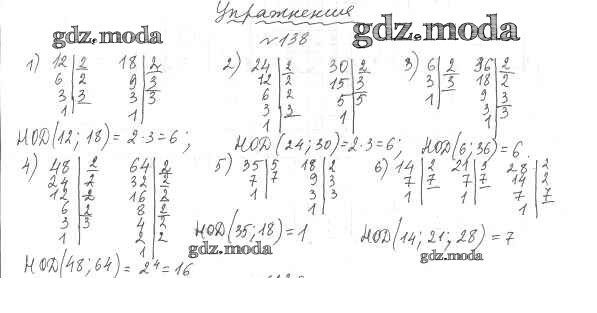 Упражнения
gdz.moda
gdz.moda
№138
1) 12 | 2 18 | 2
6 | 2 9 | 3
3 | 3 3 | 3
1 | 1 |
НОД(12; 18) = 2·3 = 6;
2) 24 | 2 30 | 2
12 | 2 15 | 3
6 | 2 5 | 5
3 | 3 1 |
1 |
НОД(24; 30) = 2·3 = 6;
3) 6 | 2 36 | 2
3 | 3 18 | 2
1 | 9 | 3
3 | 3
1 |
НОД(6; 36) = 6.
4) 48 | 2 64 | 2
24 | 2 32 | 2
12 | 2 16 | 2
6 | 2 8 | 2
3 | 3 4 | 2
1 | 2 | 2
1 |
НОД(48; 64) = 2⁴ = 16
5) 35 | 5 18 | 2
7 | 7 9 | 3
1 | 3 | 3
1 |
НОД(35; 18) = 1
gdz.moda
6) 14 | 2 21 | 3 28 | 2
7 | 7 7 | 7 14 | 2
1 | 1 | 7 | 7
1 |
НОД(14; 21; 28) = 7
gdz.moda